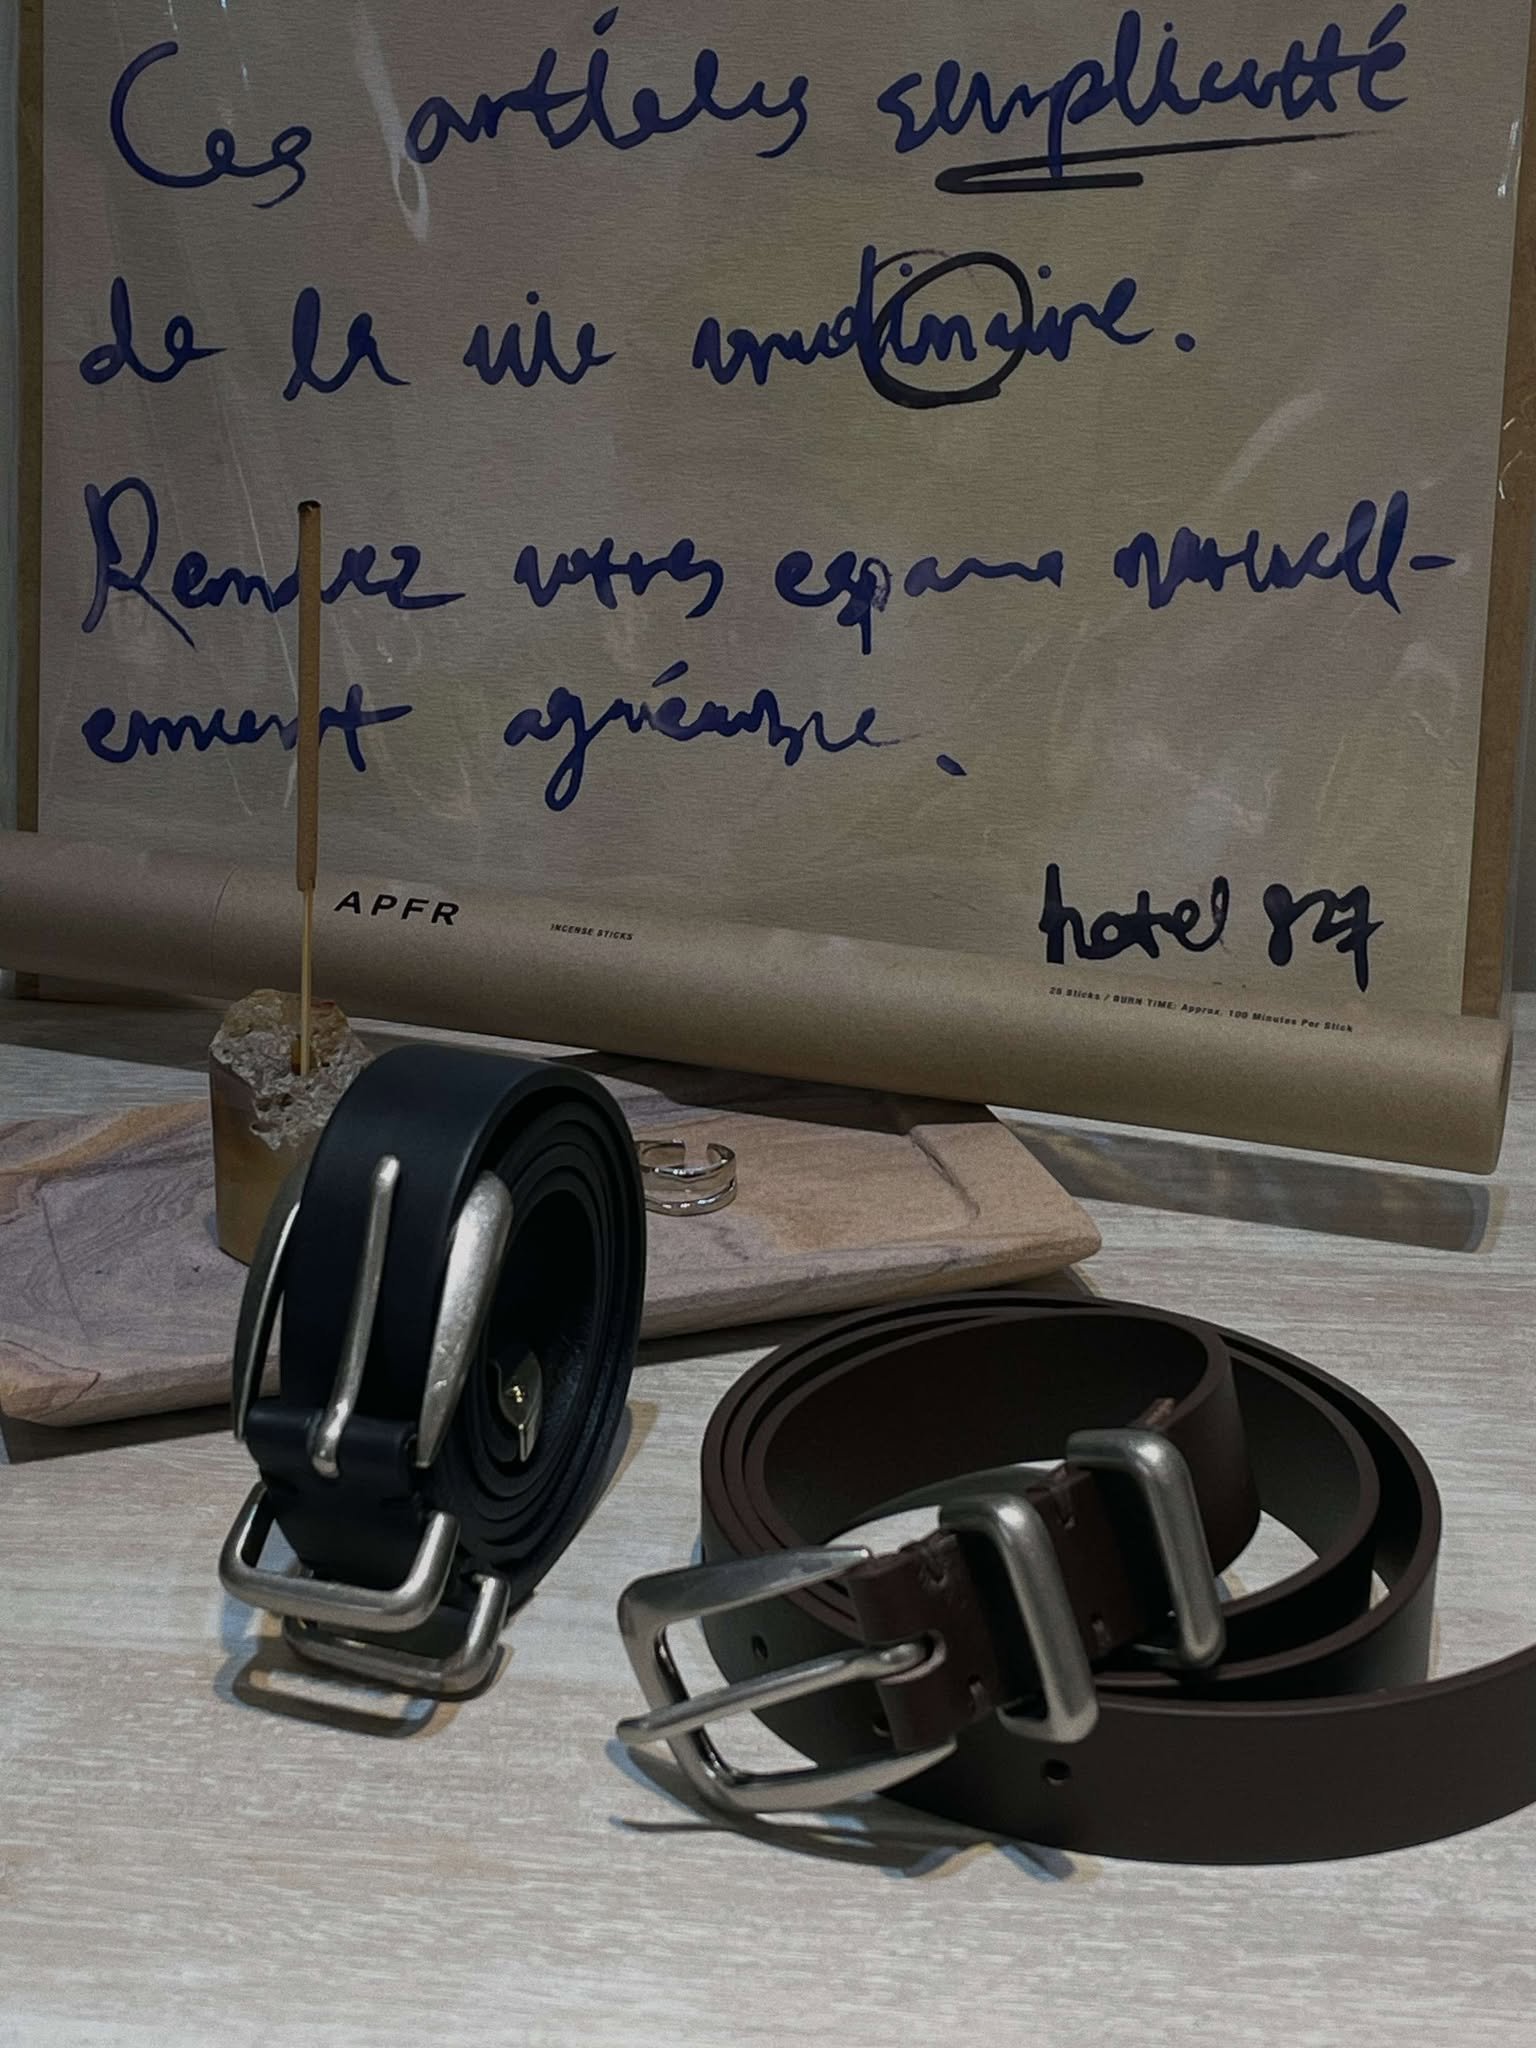 Ces articles semplicitté
de la vie
Rendez votres espace nouvell-
ement agréable.
hotel 827
APFR
INCENSE STICKS
25 Sticks / BURN TIME: Approx. 100 Minutes Per Stick